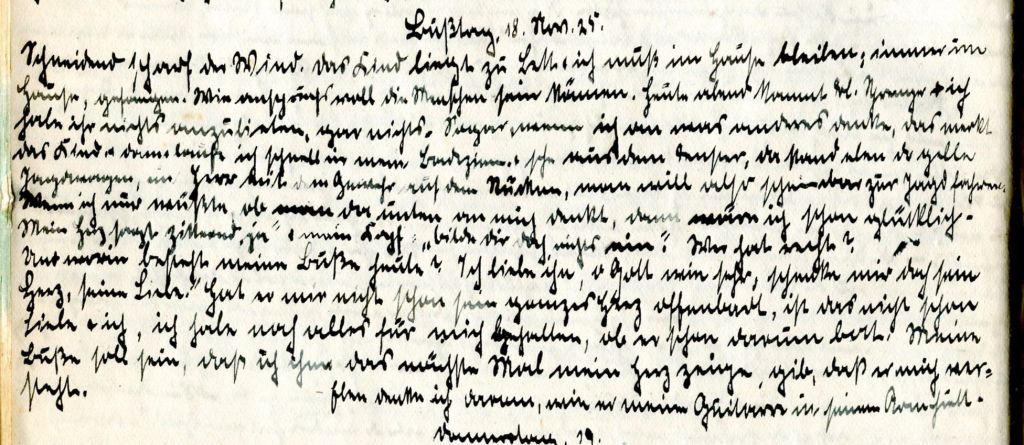 Bußtag, 18. Nov. 25.
Schneidend scharf der Wind. Das Kind liegt zu Bett & ich muß im Hause bleiben; immer im
Hause, gefangen. Wie anspruchsvoll die Menschen sein können. Heute abend kommt Frl. Sprenge & ich
habe ihr nichts anzubieten, gar nichts. Sogar, wenn ich an was anderes denke, das merkt
das Kind. & dann laufe ich schnell in mein Badezimm. & sehe aus dem Fenster, da stand eben der gelbe
Jagdwagen, ein Herr mit dem Gewehr auf dem Rücken, man will also scheinbar zur Jagd fahren.
Wenn ich nur wüßte, ob man da unten an mich denkt, dann wäre ich schon glücklich.
Mein Herz sagt zitternd „ja" & mein Kopf: „bilde dir doch nichts ein"! Wer hat recht?
Und worin besteht meine Buße heute? Ich liebe ihn, o Gott wie sehr, schenke mir doch sein
Herz, seine Liebe! Hat er mir nicht schon sein ganzes Herz offenbart, ist das nicht schon
Liebe & ich, ich habe noch alles für mich behalten, ob er schon darum bat. Meine
Buße soll sein, daß ich ihm das nächste Mal mein Herz zeige, gib, daß er mich ver=
steht. Eben denke ich daran, wie er meine Guitarre in seinen Arm hielt.
Donnerstag, 19.